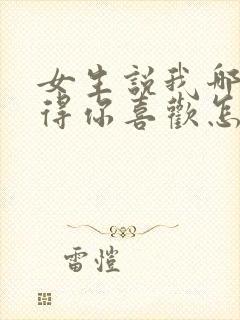 女生說我哪
得你喜歡怎
雷愷